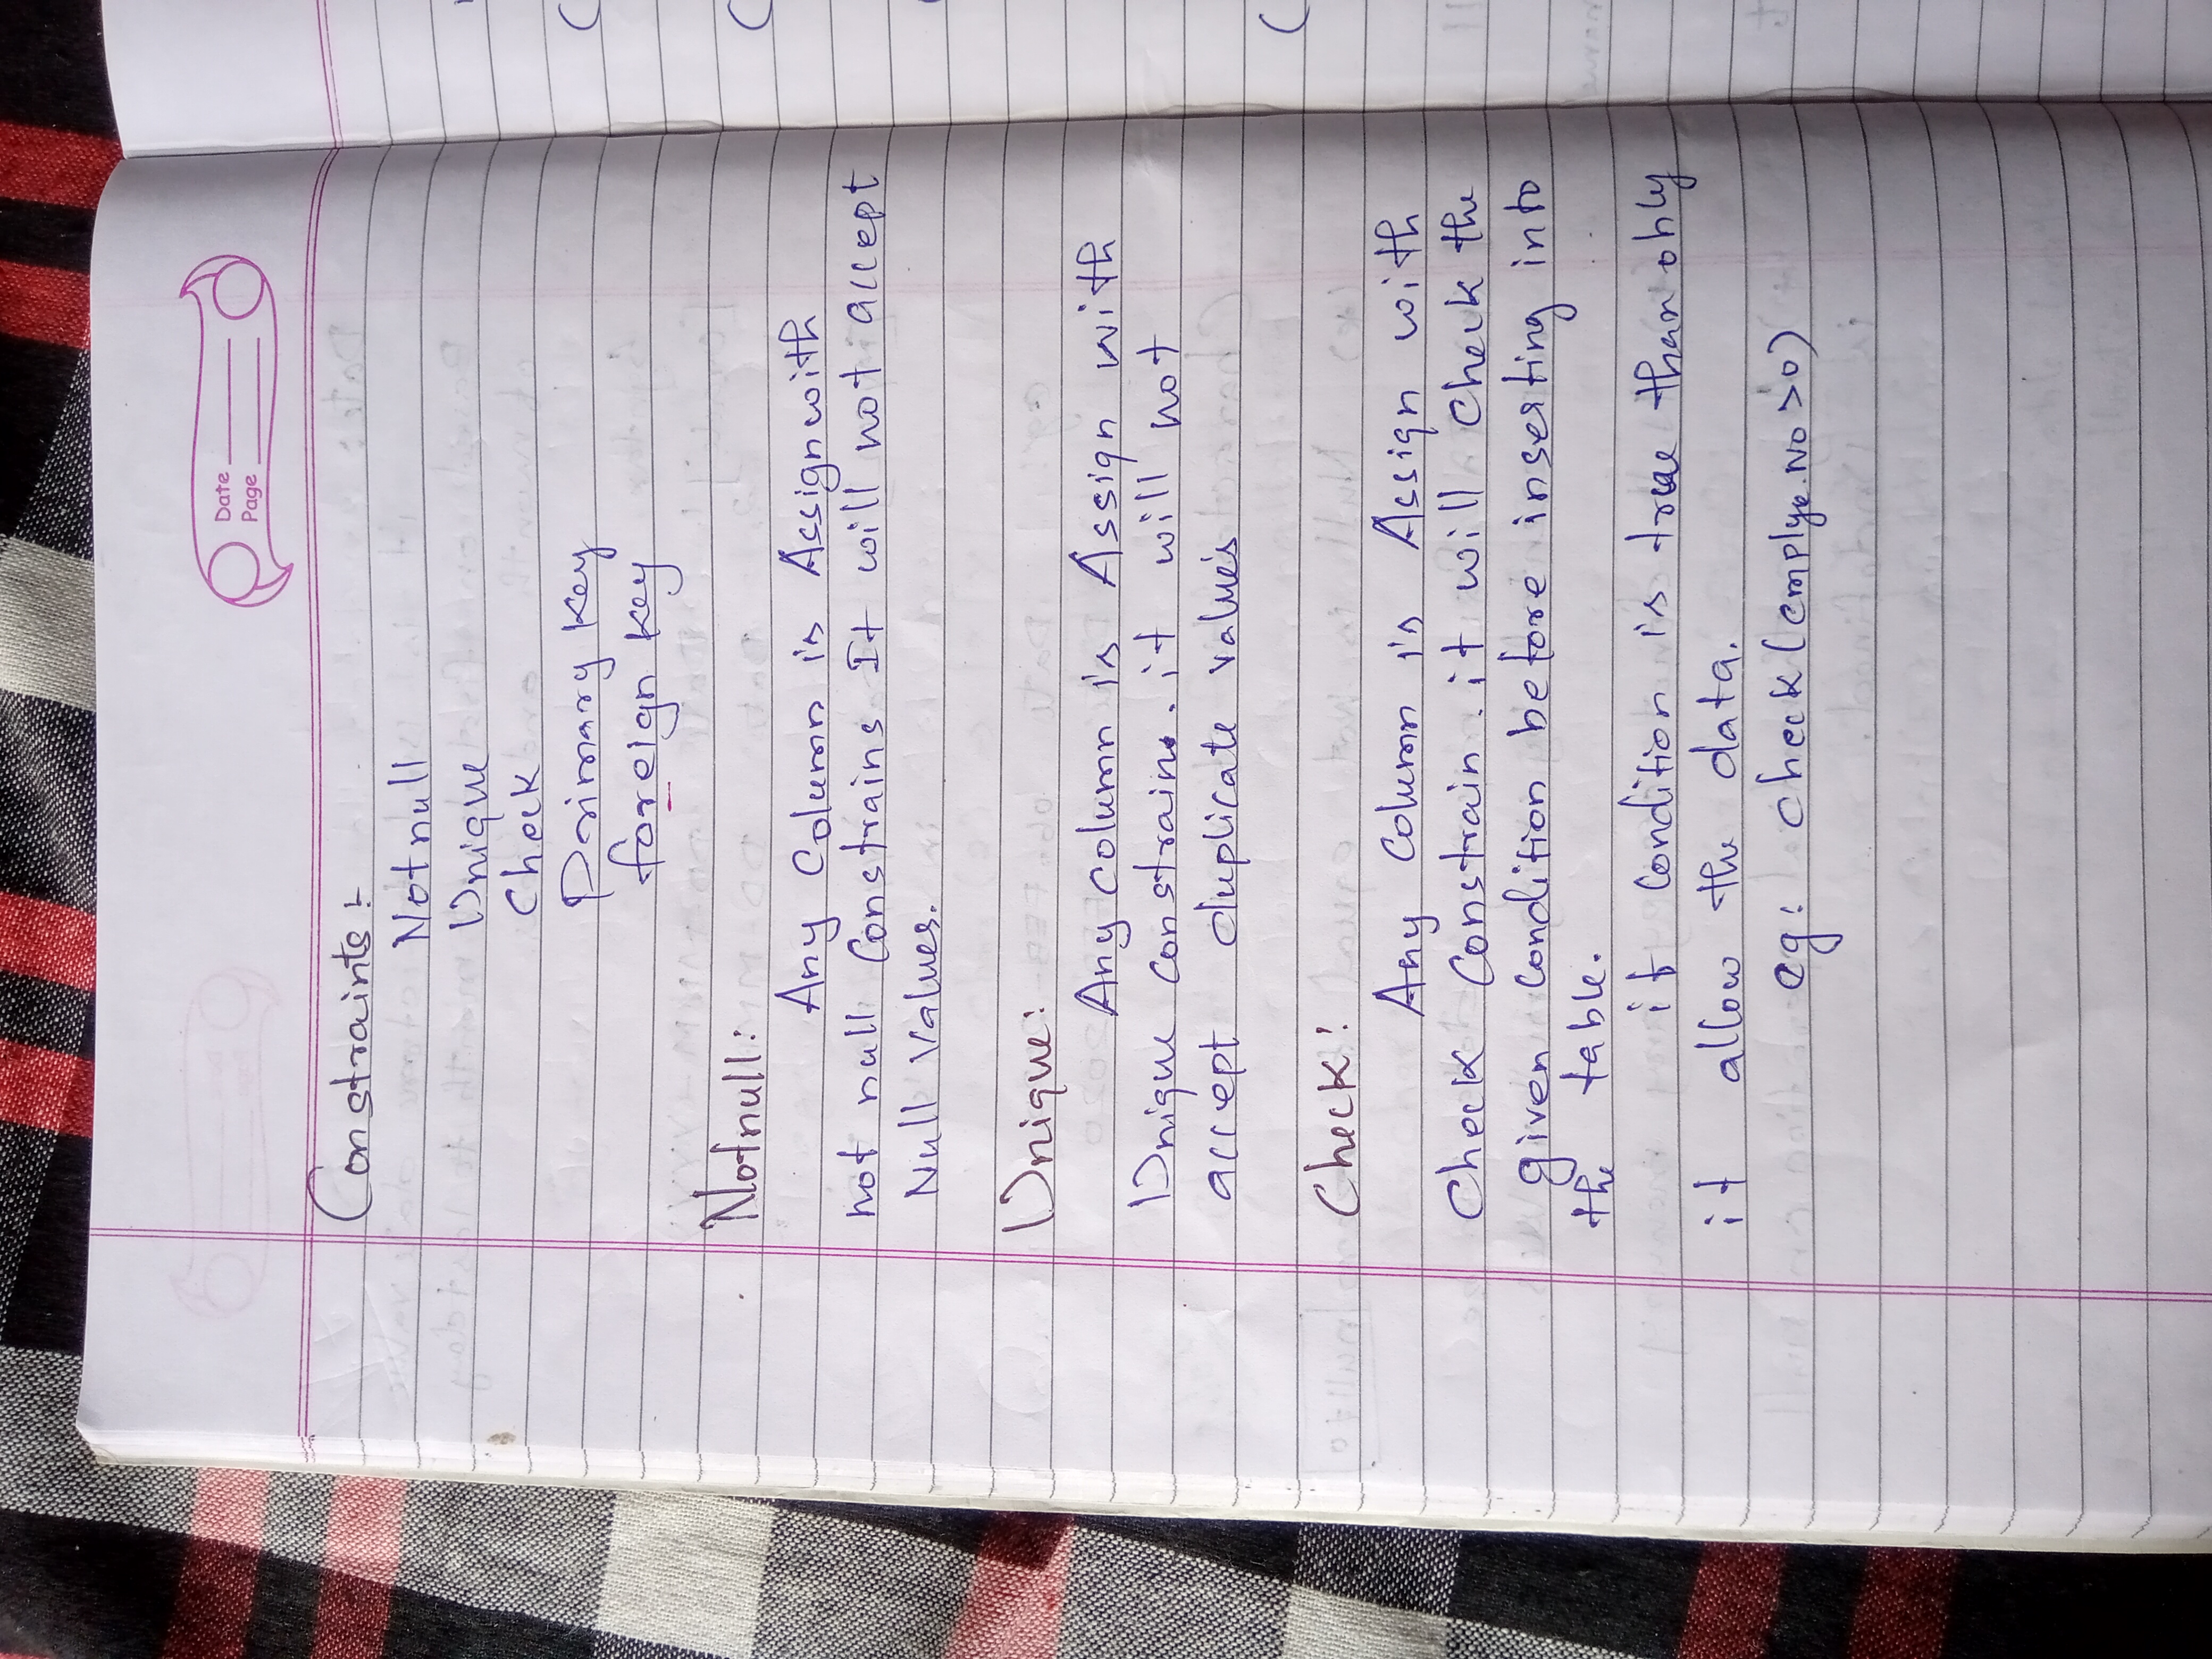 Date
Page
Constraints:-
Notnull
Unique
Check
Primary key
foreign key
Notnull:
Any Column is Assign with
not null Constrains It will not accept
Null Values.
Unique:
Any column is Assign with
Unique Constrain. it will not
accept duplicate values
Check:
Any Column is Assign with
Check Constrain. it will Check the
given Condition before inserting into
the table.
if Condition is true than only
it allow the data.
eg: check(emplye.No>0)